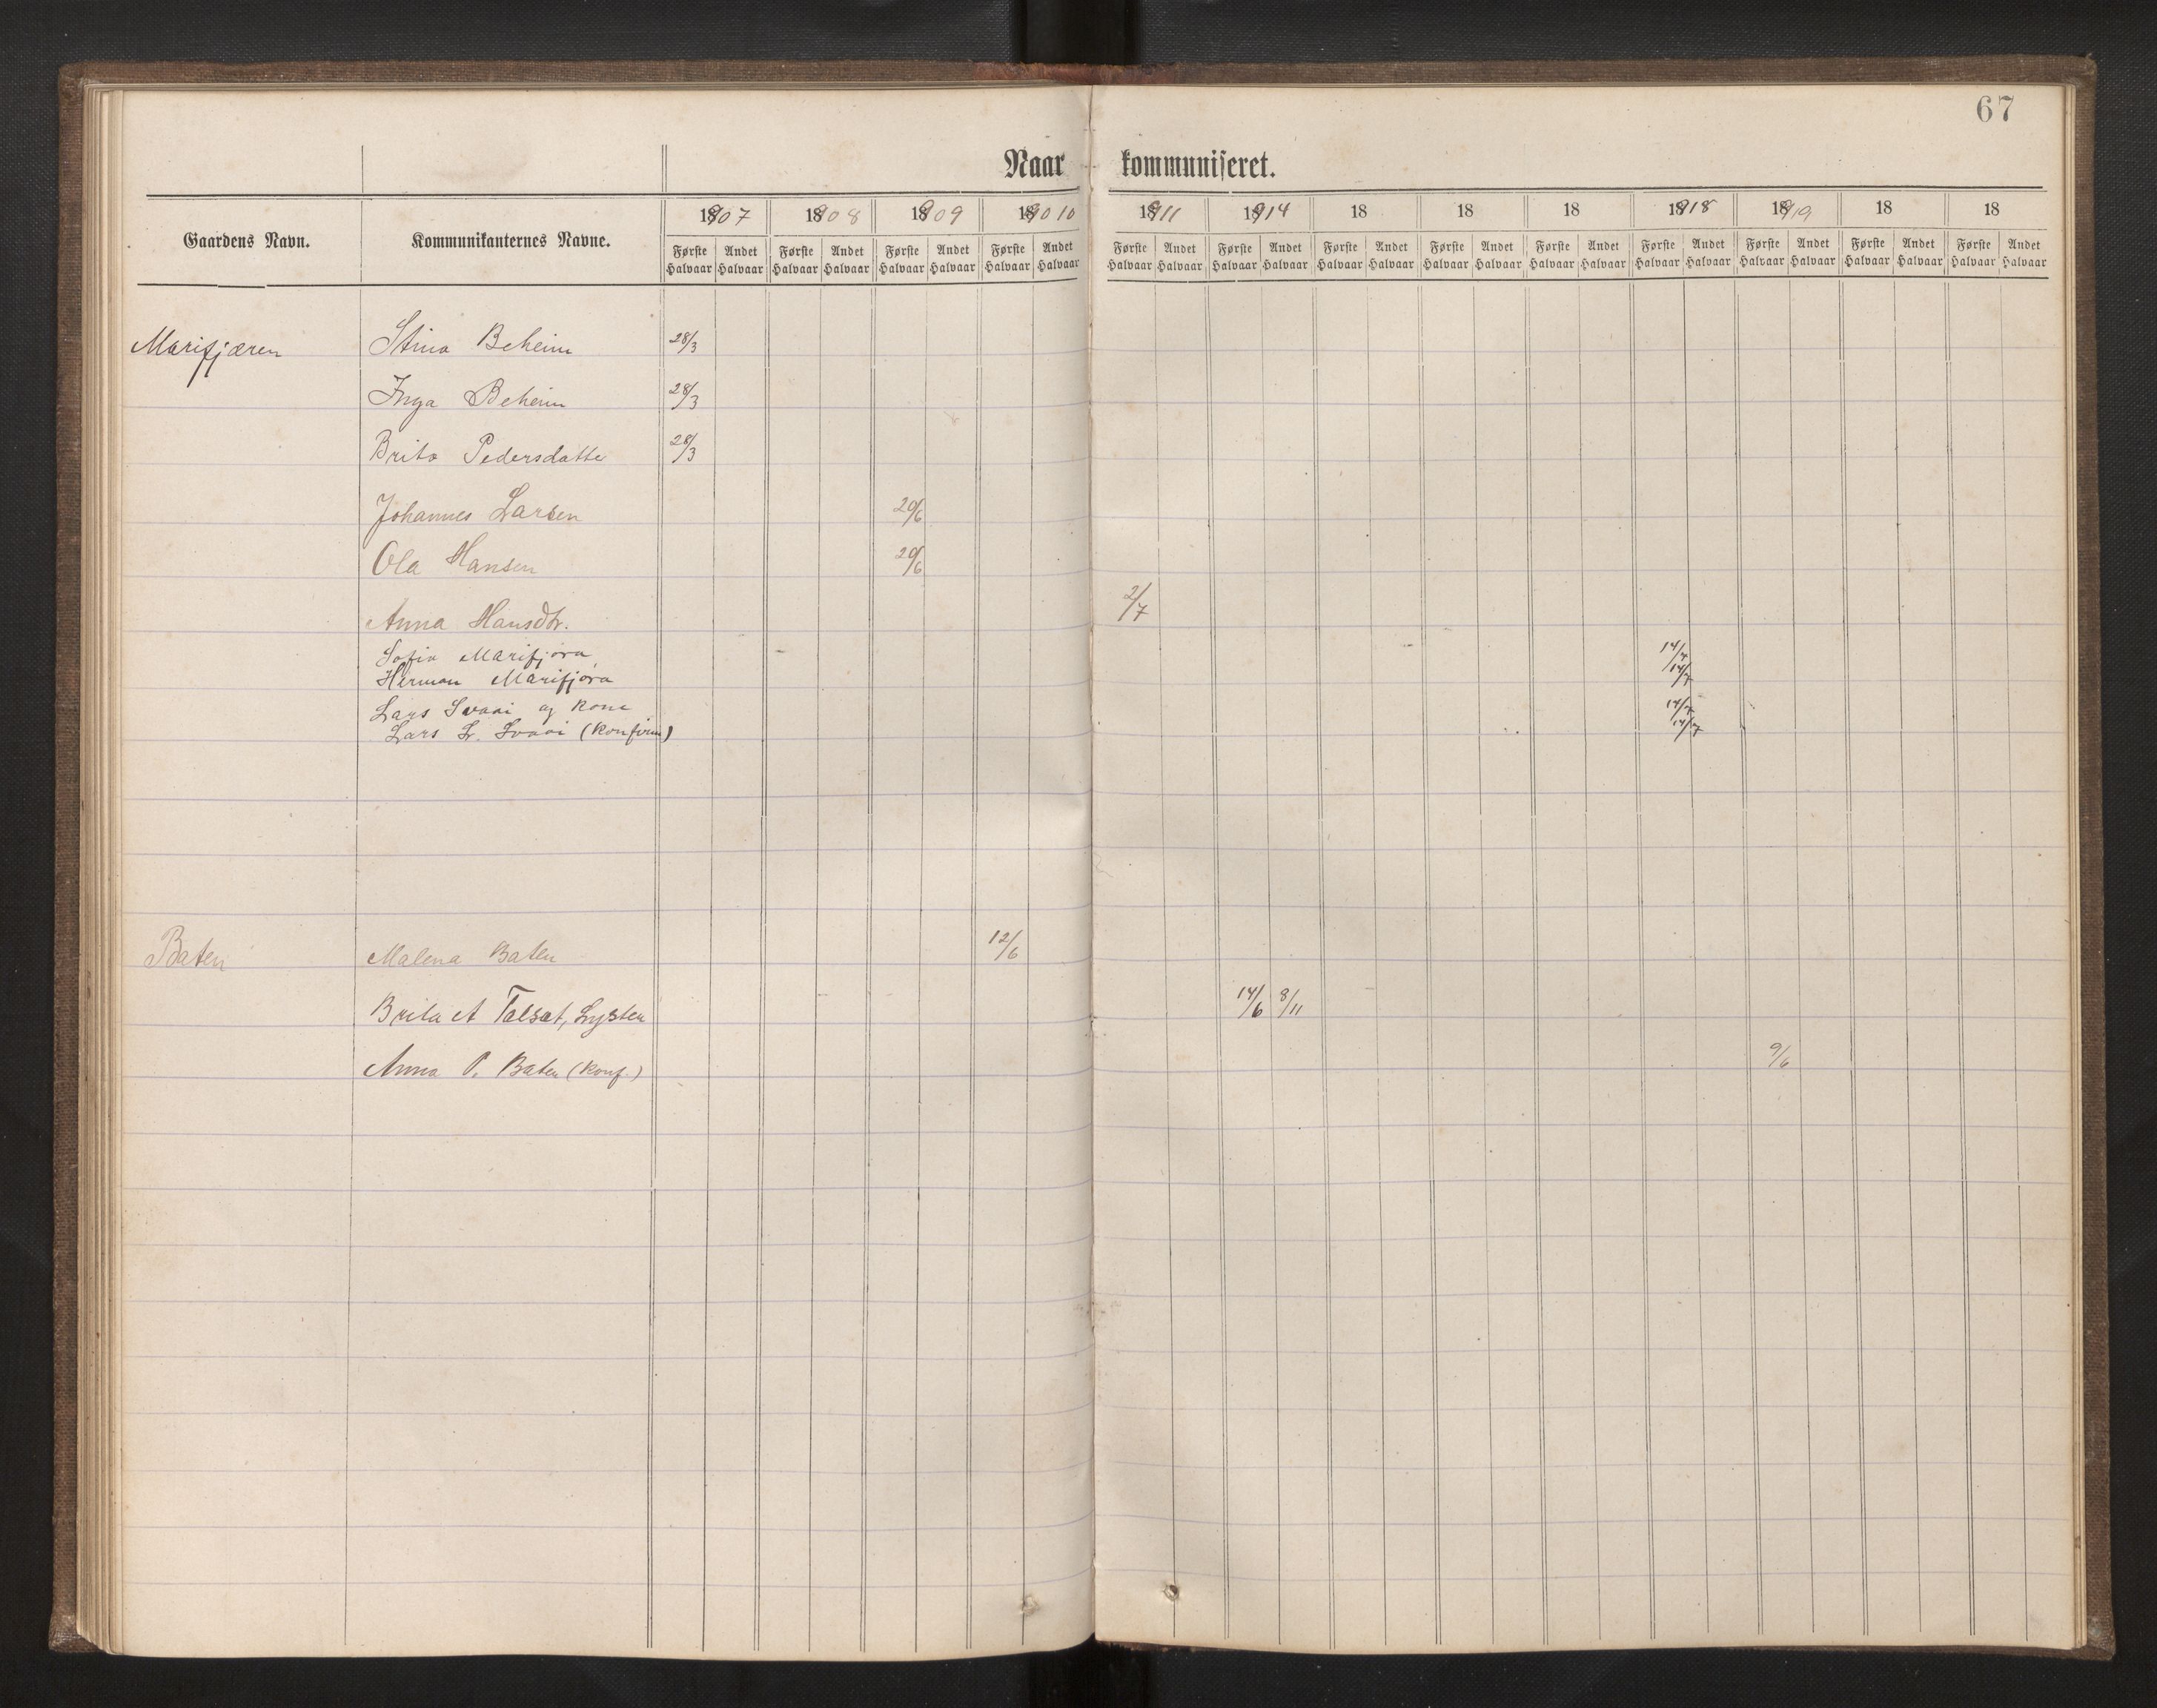 67
Naar kommuniseret.
Gaardens Navn. Kommunikanternes Navne. 1907 1908 1909 19010 1911 1914 18 18 18 1918 1919 18 18
Første Halvaar Andet Halvaar Første Halvaar Andet Halvaar Første Halvaar Andet Halvaar Første Halvaar Andet Halvaar Første Halvaar Andet Halvaar Første Halvaar Andet Halvaar Første Halvaar Andet Halvaar Første Halvaar Andet Halvaar Første Halvaar Andet Halvaar Første Halvaar Andet Halvaar Første Halvaar Andet Halvaar Første Halvaar Andet Halvaar Første Halvaar Andet Halvaar
Marifjæren Stina Beheim 28/3
Inga Beheim 28/3
Brita Pedersdatte 28/3
Johannes Larsen 20/6
Ola Hansen 20/6
Anna Hansdtr. 2/7
Sofia Marifjøra 14/7
Herman Marifjøra 14/7
Lars Svaai og Kone 14/7
Lars L. Svaai (Konfirm) 14/7
Baten Malena Baten 12/6
Brita A Talsat, Lyster 14/6 8/11
Anna P. Baten (Konf.) 9/6